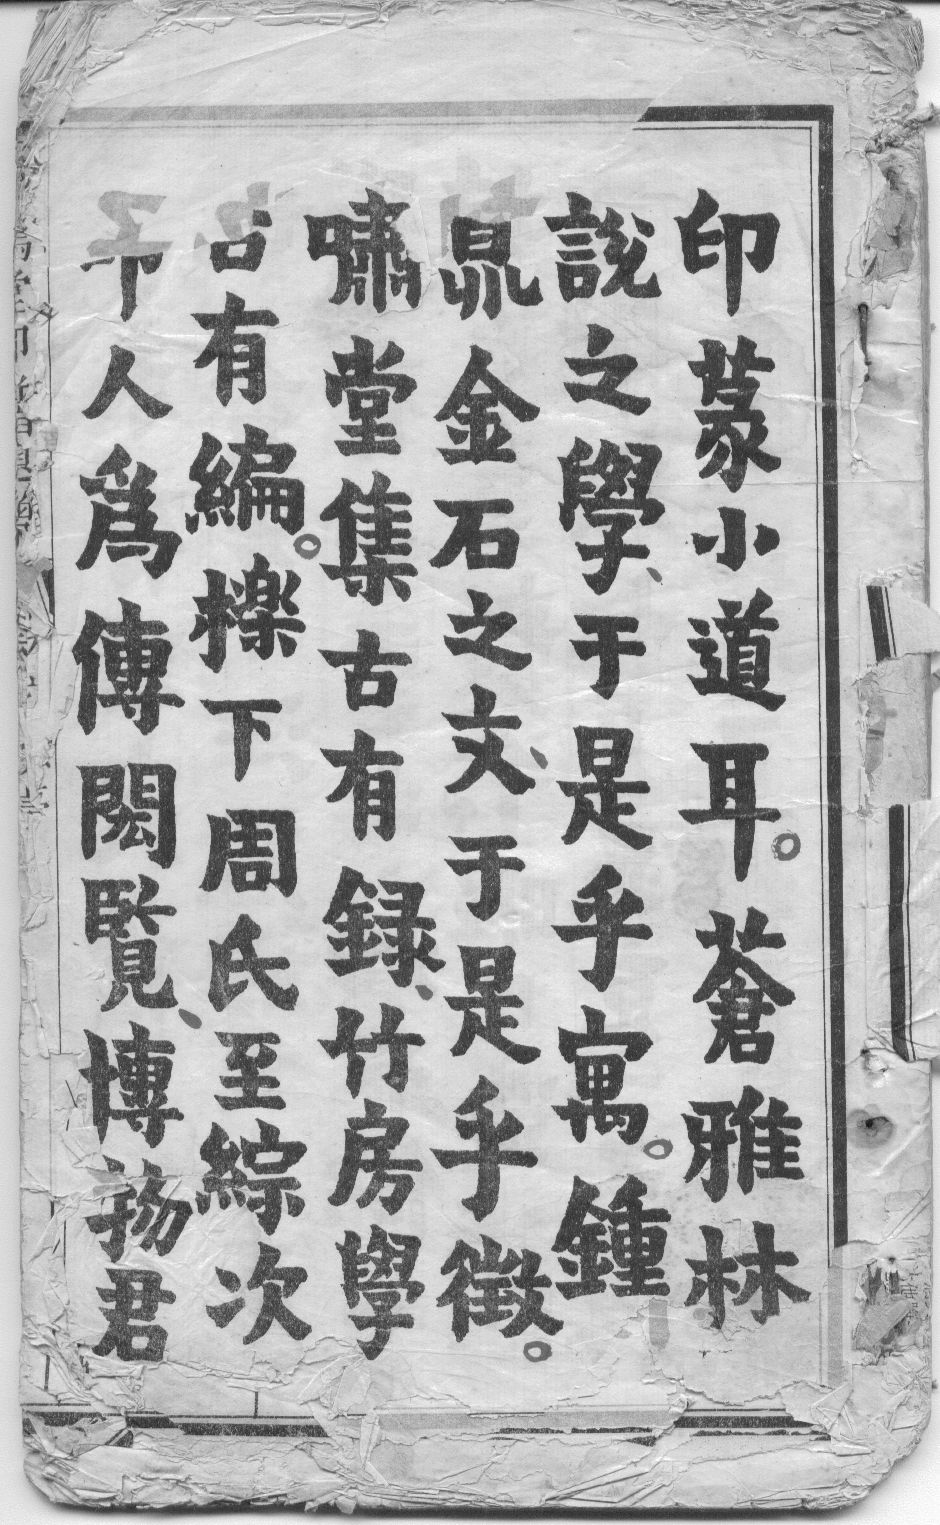 印篆小道耳。蒼雅林
說之學、于是乎寓。鍾
鼎金石之文、于是乎徵。
嘯堂集古有錄、竹房學
古有編。櫟下周氏至綜次
印人爲傳閎覽、博物君